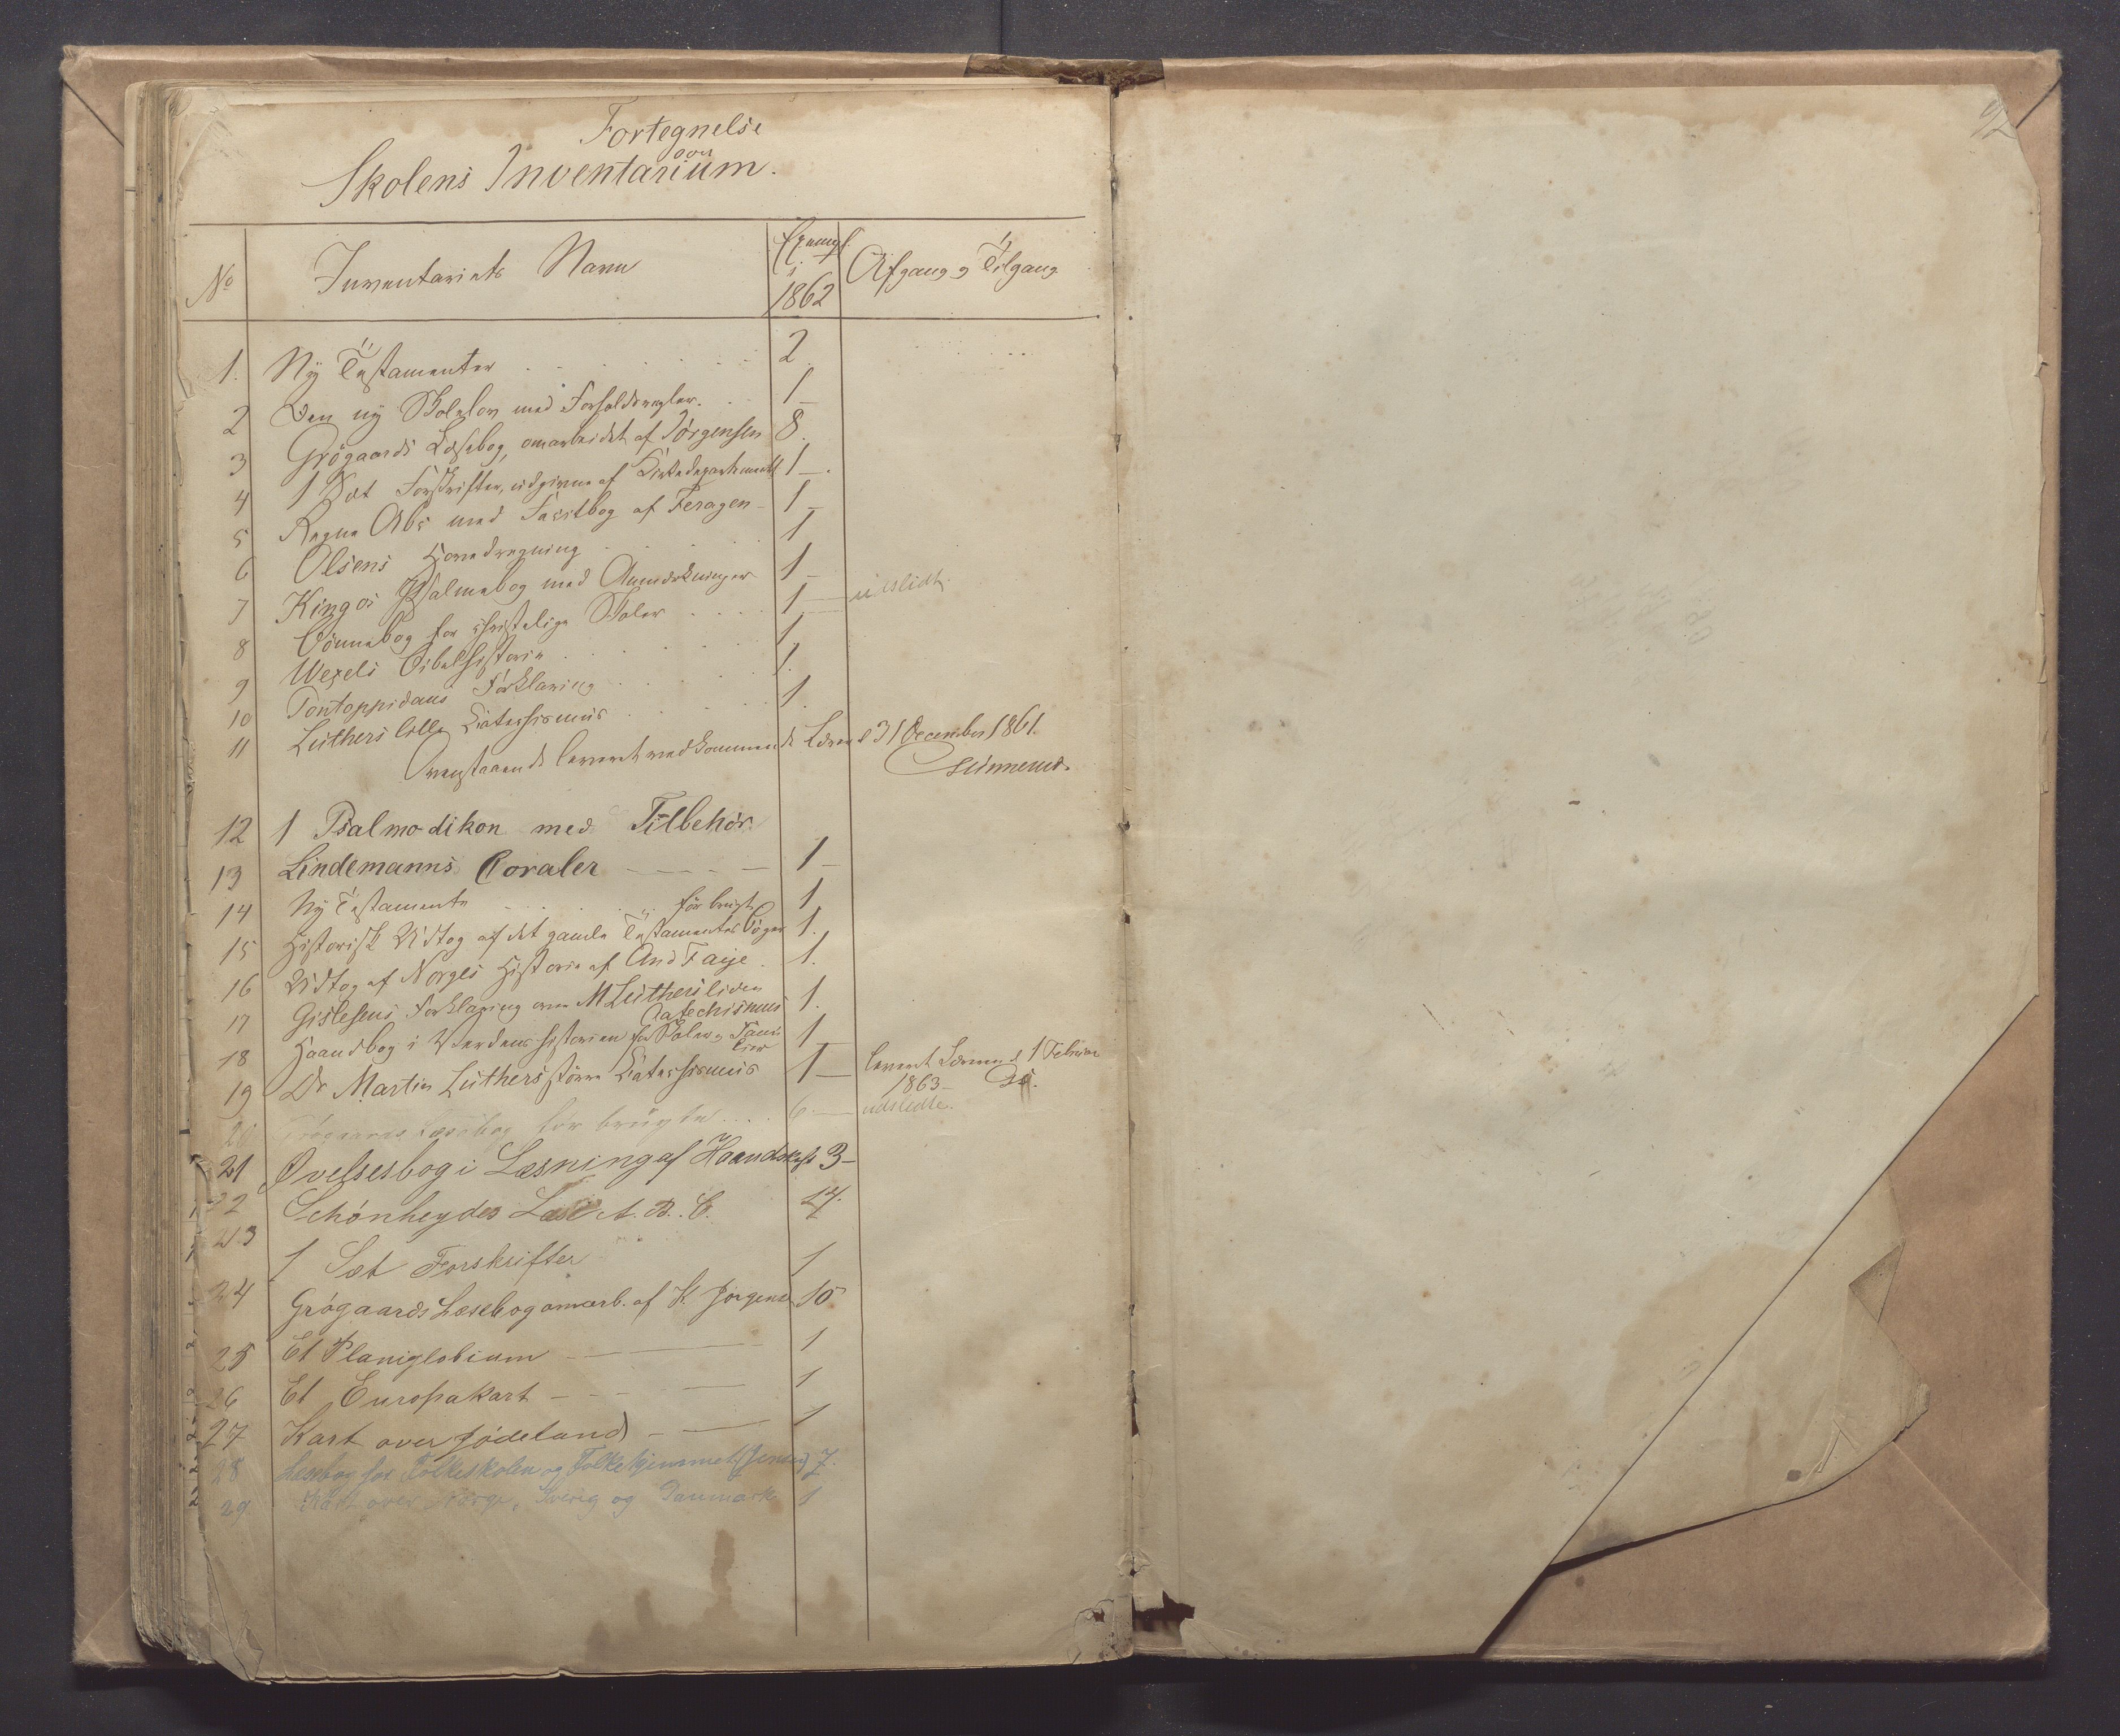 92
Fortegnelse
over
Skolens Inventarium.
No Inventariets Navn Exempl. i 1862 Afgang og Tilgang
1. Ny Testamenter 2
2 Den ny Skolelov med Forholdsregler. 1
3 Grögaards Læsebog, omarbeidet af Jörgensen 8
4 1 Sæt Forskrifter, udgivne af Kirkedepartementet 1
5 Regne Abc med Facitbog af Feragen 1
6 Olsens Hovedregning 1
7 Kingos Psalmebog med Anmærkninger 1
8 Bönnebog for christelige Skoler 1 udslidt.
9 Wexels Bibelhistorie 1
10 Pontoppidans Forklaring 1.
11 Luthers lille Katechismus 1.
Ovenstaaende leveret vedkommende Lærer d 31 December 1861.
12 1 Psalmodikon med Tilbehör
13 Lindemanns Coraler 1
14 Ny Testamente för brugt 1
15 Historisk Udtog af det gamle Testamentes Böger 1.
16 Udtog af Norges Historie af And Faye 1.
17 Gislesens Forklaring over M Luthers liden Catechismus 1.
18 Haandbog i Verdenshistorien for Skoler og Familier 1
19 Dr Martin Luthers større Katechismus 1 leveret Læreren d 1 Februar
1863
20 Grögaards Læsebog för brugte 6 udslidte.
21 Øvelsesbog i Læsning af Haandskrift 3
22 Schønheyders Læse A. B. C. 14.
23 1 Sæt Forskrifter 1
24 Grøgaards Læsebog omarb. af K. Jørgensen 10
25 Et Planiglobium 1
26 Et Europakart 1
27 Kart over Jødeland 1
28 Læsebog for Folkeskolen og Folkehjemmet (Jensen) 7.
29 Kart over Norge, Sverig og Danmark 1